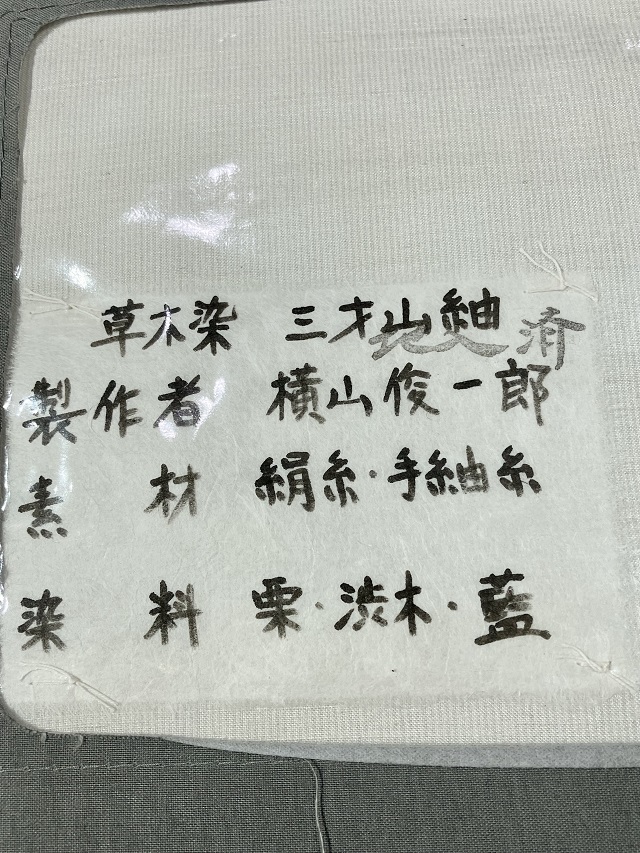 草木染 三才山紬
地入済
製作者 横山俊一郎
素材 絹糸・手紬糸
染料 栗・渋木・藍